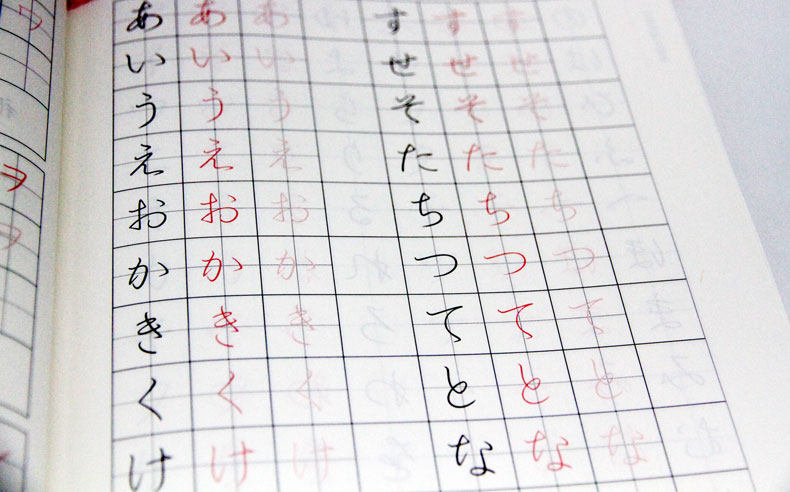 あ あ あ す す す
い い い せ せ せ
う う う そ そ そ
え え え た た た
お お お ち ち ち
か か か つ つ つ
き き き て て て
く く く と と と
け け け な な な